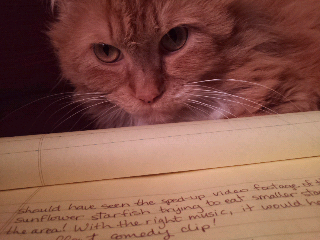 should have seen the sped-up video footage of t
sunflower starfish trying to eat smaller star
the area! With the right music, it would ha
perfect comedy clip!